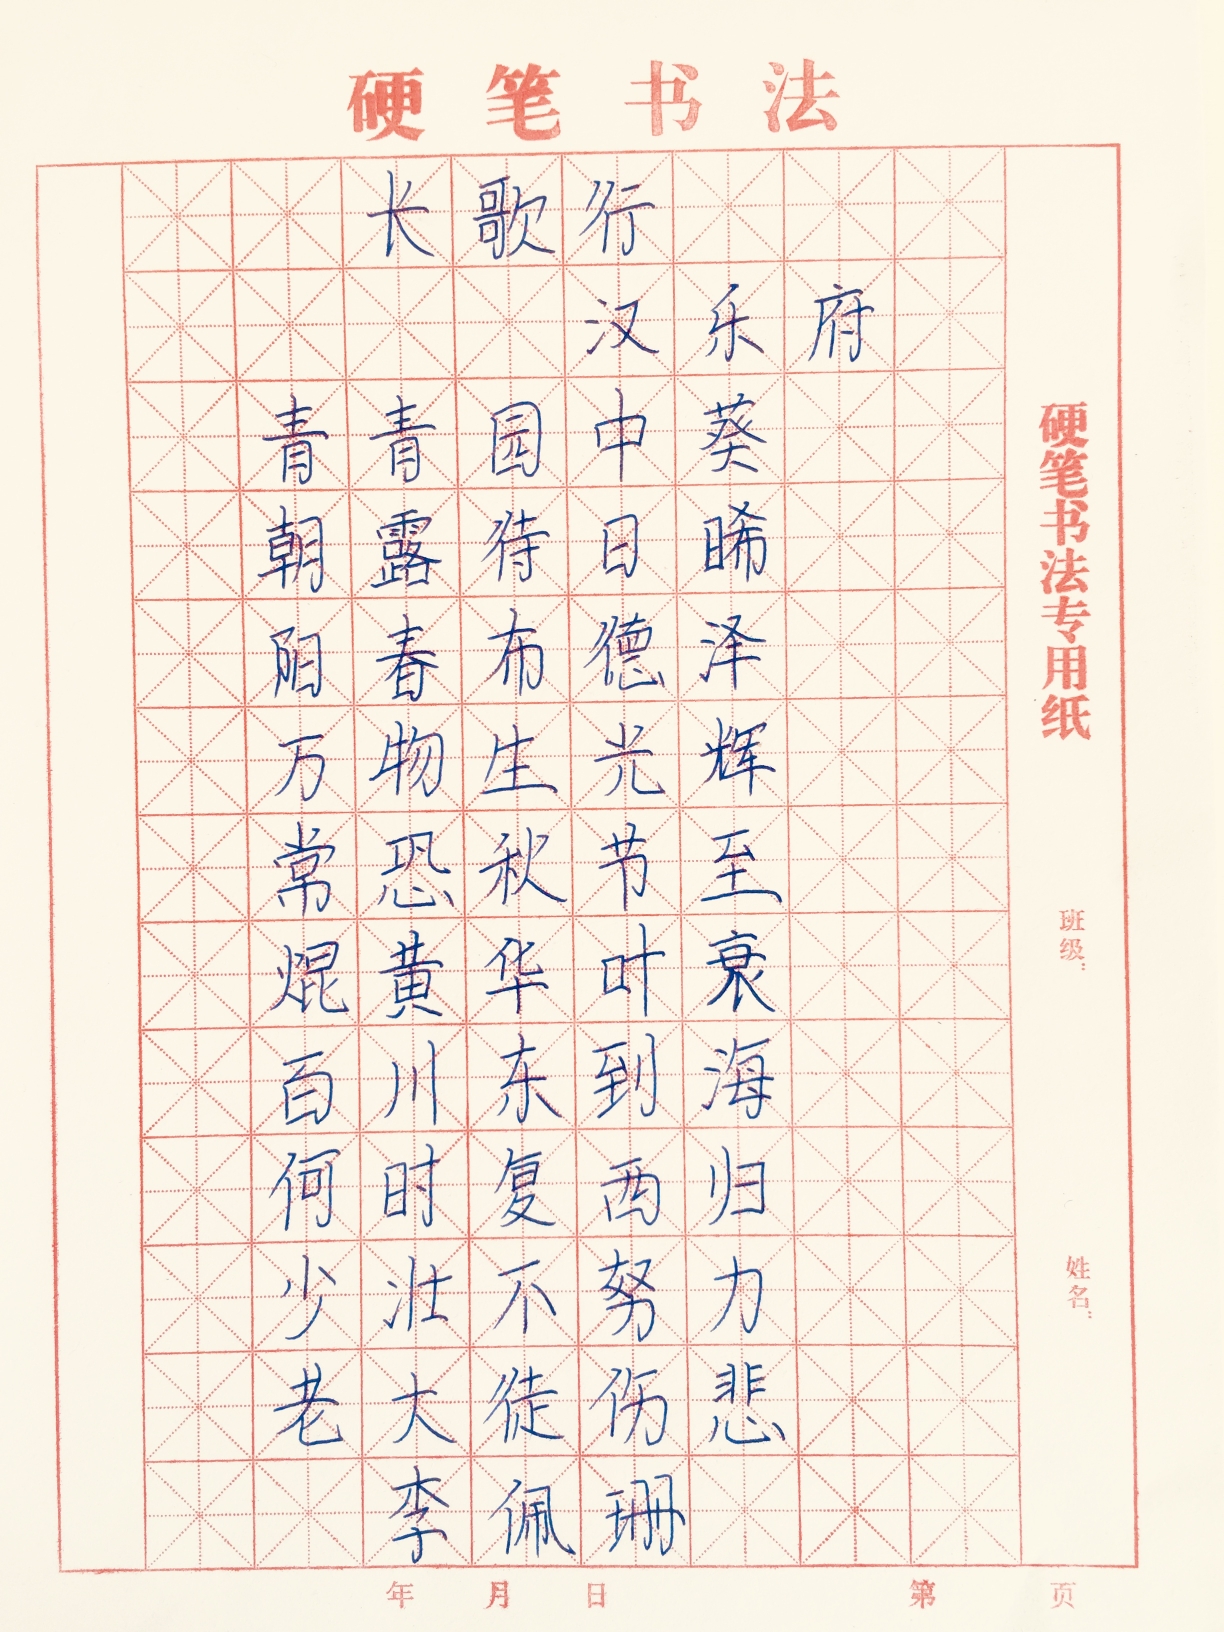 硬笔书法
长歌行
汉乐府
青青园中葵
朝露待日晞
阳春布德泽
万物生光辉
常恐秋节至
焜黄华叶衰
百川东到海
何时复西归
少壮不努力
老大徒伤悲
李佩珊
硬笔书法专用纸
班级：
姓名：
年 月 日 第 页